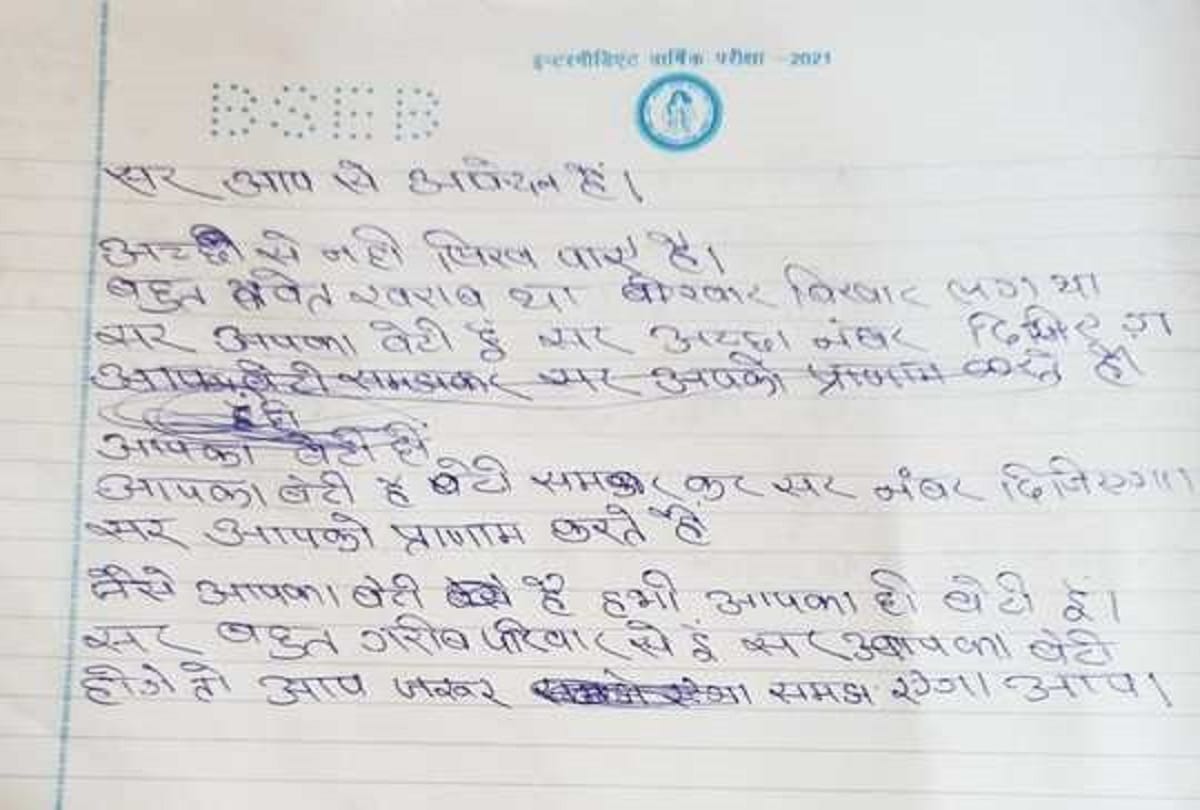 इन्टरमीडिएट वार्षिक परीक्षा - 2021
BSEB
सर आप से है।
अच्छी से नही लिख पाए है।
बहुत तबेत खराब था बोखार लगा था
सर आपका बेटी हूं सर अच्छा नंबर
आपका बेटी समझकर सर आपको प्राणाम करते है।
आपका बेटी
आपका बेटी है बेटी कर सर नंबर दिजिएगा।
सर आपको प्राणाम करते हैं
जैसे आपका बेटी है हमी आपका ही बेटी हूं।
सर बहुत गरीब परिवार से हूं सर आपका बेटी
होगे तो आप जरूर समझ आप।